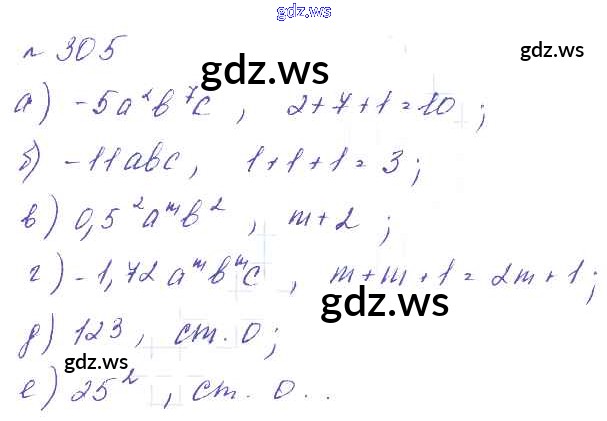 gdz.ws
№ 305
gdz.ws
gdz.ws
а) -5a²b⁷c, 2+7+1=10;
б) -11abc, 1+1+1=3;
в) 0,5²aᵐb², m+2;
г) -1,72aᵐbᵐc, m+m+1=2m+1;
gdz.ws
д) 123, ст. 0;
gdz.ws
е) 25², ст. 0..